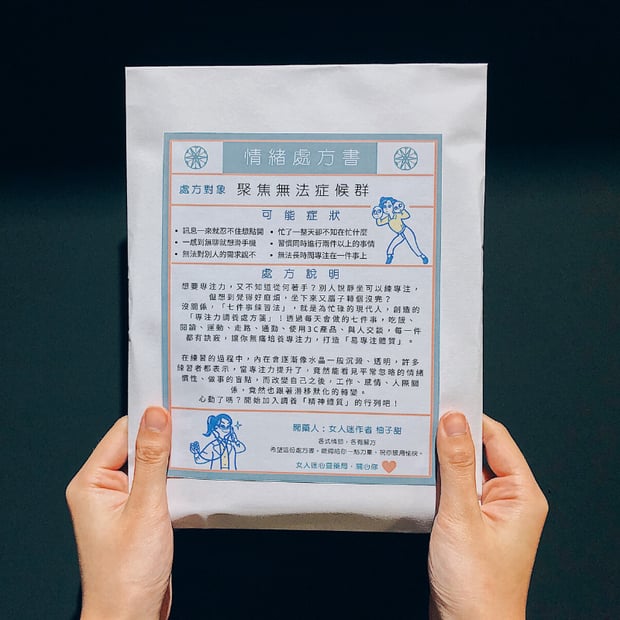 情緒處方書
處方對象 聚焦無法症候群
可能症狀
• 訊息一來就忍不住想點開 • 忙了一整天卻不知在忙什麼
• 一感到無聊就想滑手機 • 習慣同時進行兩件以上的事情
• 無法對別人的需求說不 • 無法長時間專注在一件事上
處方說明
想要專注力，又不知道從何著手？別人說靜坐可以練專注，
但想到覺得好麻煩，坐下來又腦子轉個沒完？
沒關係，「七件事練習法」，就是為忙碌的現代人，創造的
「專注力調養處方箋」！透過每天會做的七件事，吃飯、
閱讀、運動、走路、通勤、使用3C產品、與人交談，每一件
都有訣竅，讓你無痛培養專注力，打造「易專注體質」。
在練習的過程中，內在會逐漸像水晶一般沉澱、透明，許多
練習者都表示，當專注力提升了，竟然能看見平常忽略的情緒
慣性、做事的盲點，而改變自己之後，工作、感情、人際關
係，竟然也跟著潛移默化的轉變。
心動了嗎？開始加入調養「精神體質」的行列吧！
開藥人：女人迷作者 柚子甜
各式情節，各有解方
希望這份處方書，能得給你一點力量，祝你服用愉快。
女人迷心靈藥局，關心你